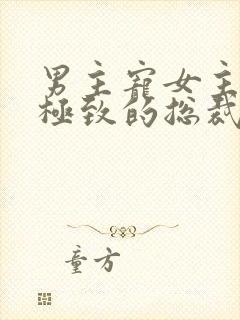 男主寵女主
極致的總裁
童方